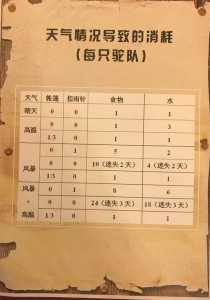 天气情况导致的消耗
（每只驼队）
天气 帐篷 指南针 食物 水
晴天 0 0 1 1
高温 0 0 1 3
1/3 0 1 1
0 1 5 2
风暴 0 0 10（迷失2天） 4（迷失2天）
1/3 0 1 1
风暴 0 1 8 6
+ 0 0 24（迷失3天） 18（迷失3天）
高温 1/3 0 1 1